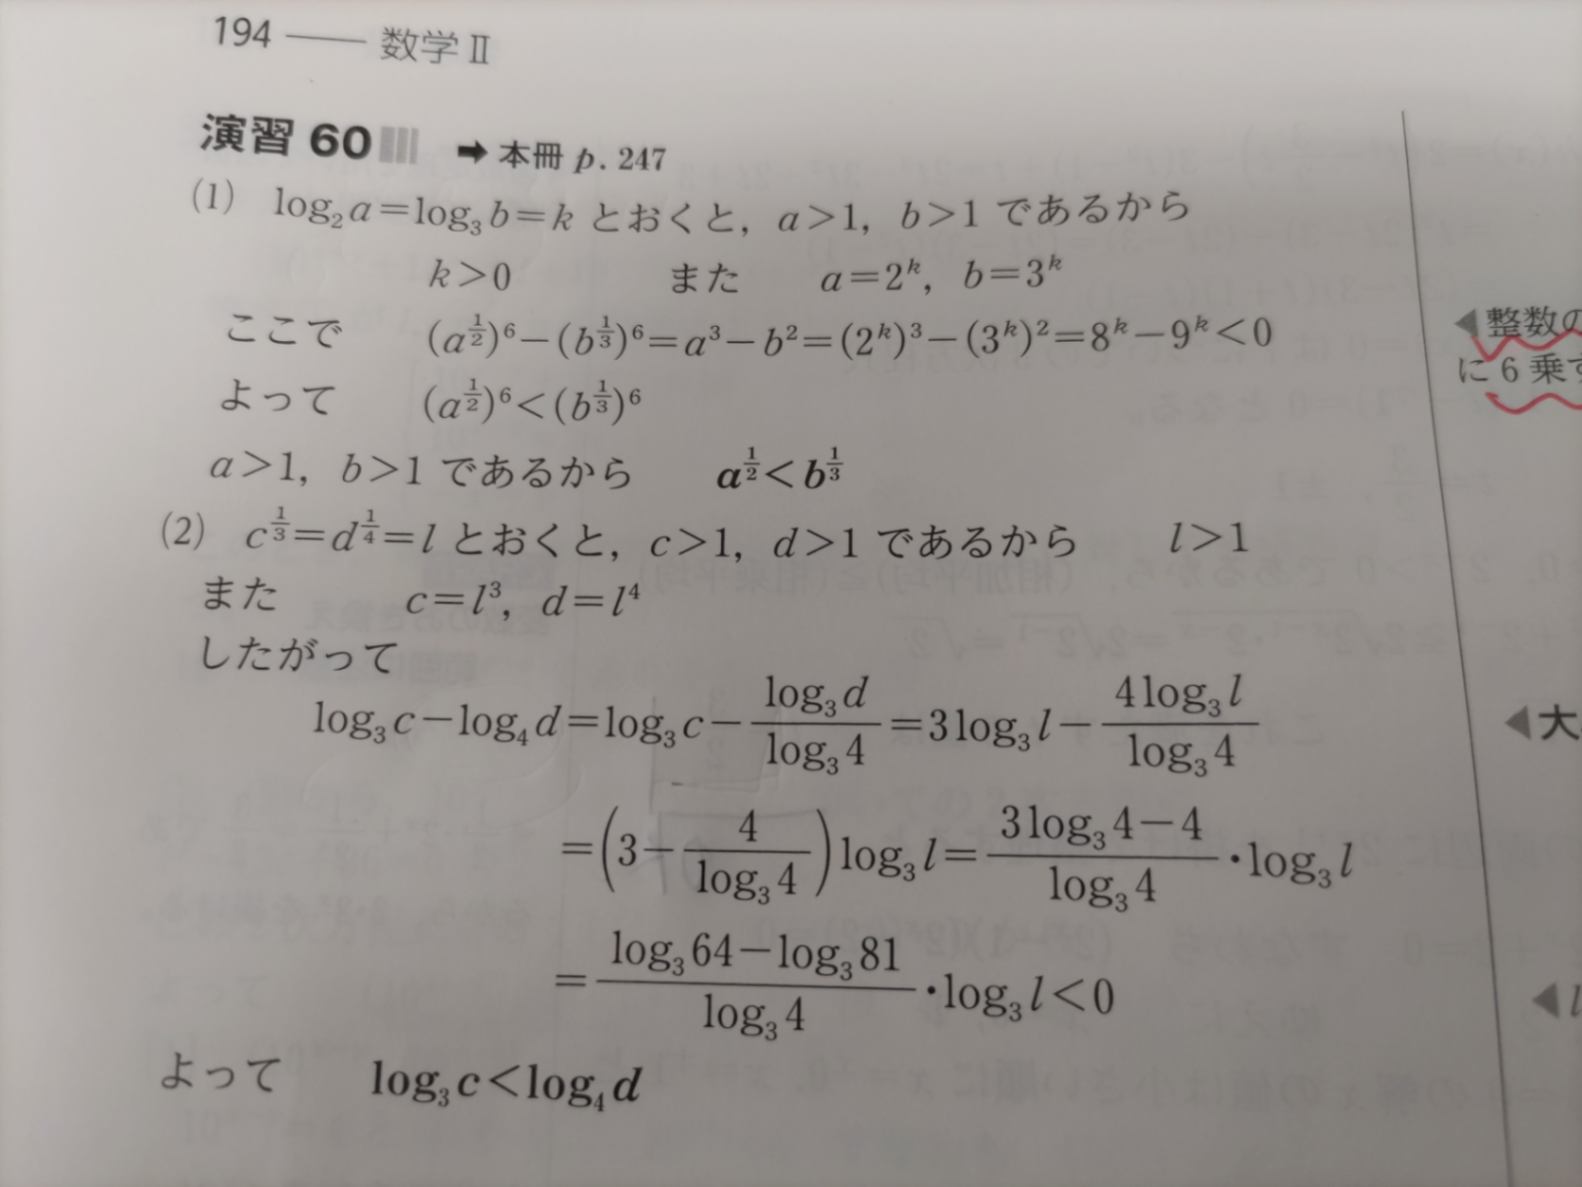 194 —— 数学Ⅱ
演習 60 ➡ 本冊 p. 247
(1) log₂a=log₃b=k とおくと, a>1, b>1 であるから
k>0 また a=2ᵏ, b=3ᵏ
ここで (a^{1/2})⁶−(b^{1/3})⁶=a³−b²=(2ᵏ)³−(3ᵏ)²=8ᵏ−9ᵏ<0
◀整数の
に6乗す
よって (a^{1/2})⁶<(b^{1/3})⁶
a>1, b>1 であるから a^{1/2}<b^{1/3}
(2) c^{1/3}=d^{1/4}=l とおくと, c>1, d>1 であるから l>1
また c=l³, d=l⁴
したがって
log₃c−log₄d=log₃c−\frac{log₃d}{log₃4}=3log₃l−\frac{4log₃l}{log₃4}
◀大
=(3−\frac{4}{log₃4})log₃l=\frac{3log₃4−4}{log₃4}・log₃l
=\frac{log₃64−log₃81}{log₃4}・log₃l<0
◀l
よって log₃c<log₄d